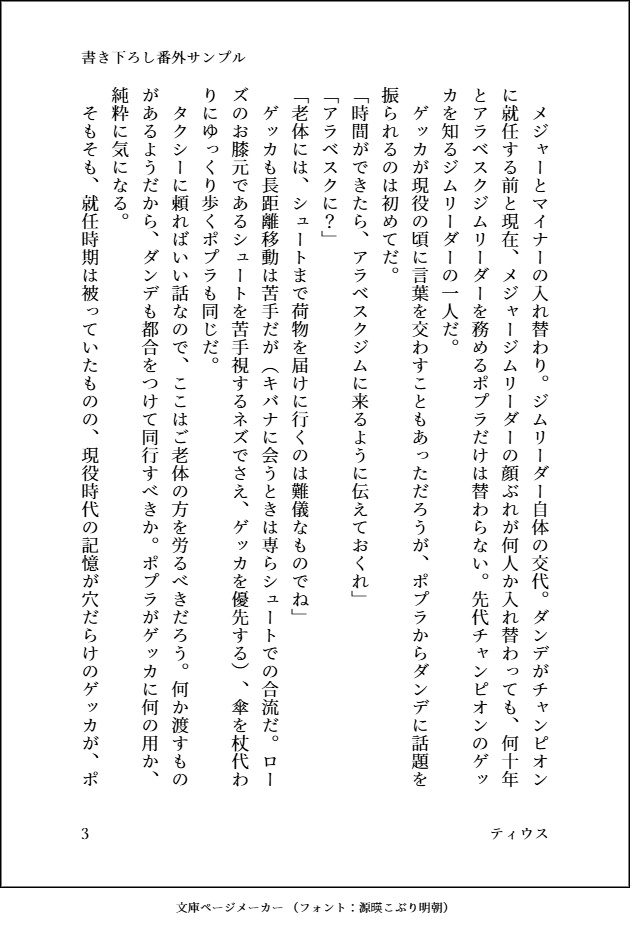 書き下ろし番外サンプル
　メジャーとマイナーの入れ替わり。ジムリーダー自体の交代。ダンデがチャンピオン
に就任する前と現在、メジャージムリーダーの顔ぶれが何人か入れ替わっても、何十年
とアラベスクジムリーダーを務めるポプラだけは替わらない。先代チャンピオンのゲッ
カを知るジムリーダーの一人だ。
　ゲッカが現役の頃に言葉を交わすこともあっただろうが、ポプラからダンデに話題を
振られるのは初めてだ。
「時間ができたら、アラベスクジムに来るように伝えておくれ」
「アラベスクに？」
「老体には、シュートまで荷物を届けに行くのは難儀なものでね」
　ゲッカも長距離移動は苦手だが（キバナに会うときは専らシュートでの合流だ。ロー
ズのお膝元であるシュートを苦手視するネズでさえ、ゲッカを優先する）、傘を杖代わ
りにゆっくり歩くポプラも同じだ。
　タクシーに頼ればいい話なので、ここはご老体の方を労るべきだろう。何か渡すもの
があるようだから、ダンデも都合をつけて同行すべきか。ポプラがゲッカに何の用か、
純粋に気になる。
　そもそも、就任時期は被っていたものの、現役時代の記憶が穴だらけのゲッカが、ポ
3
ティウス
文庫ページメーカー（フォント：源暎こぶり明朝）